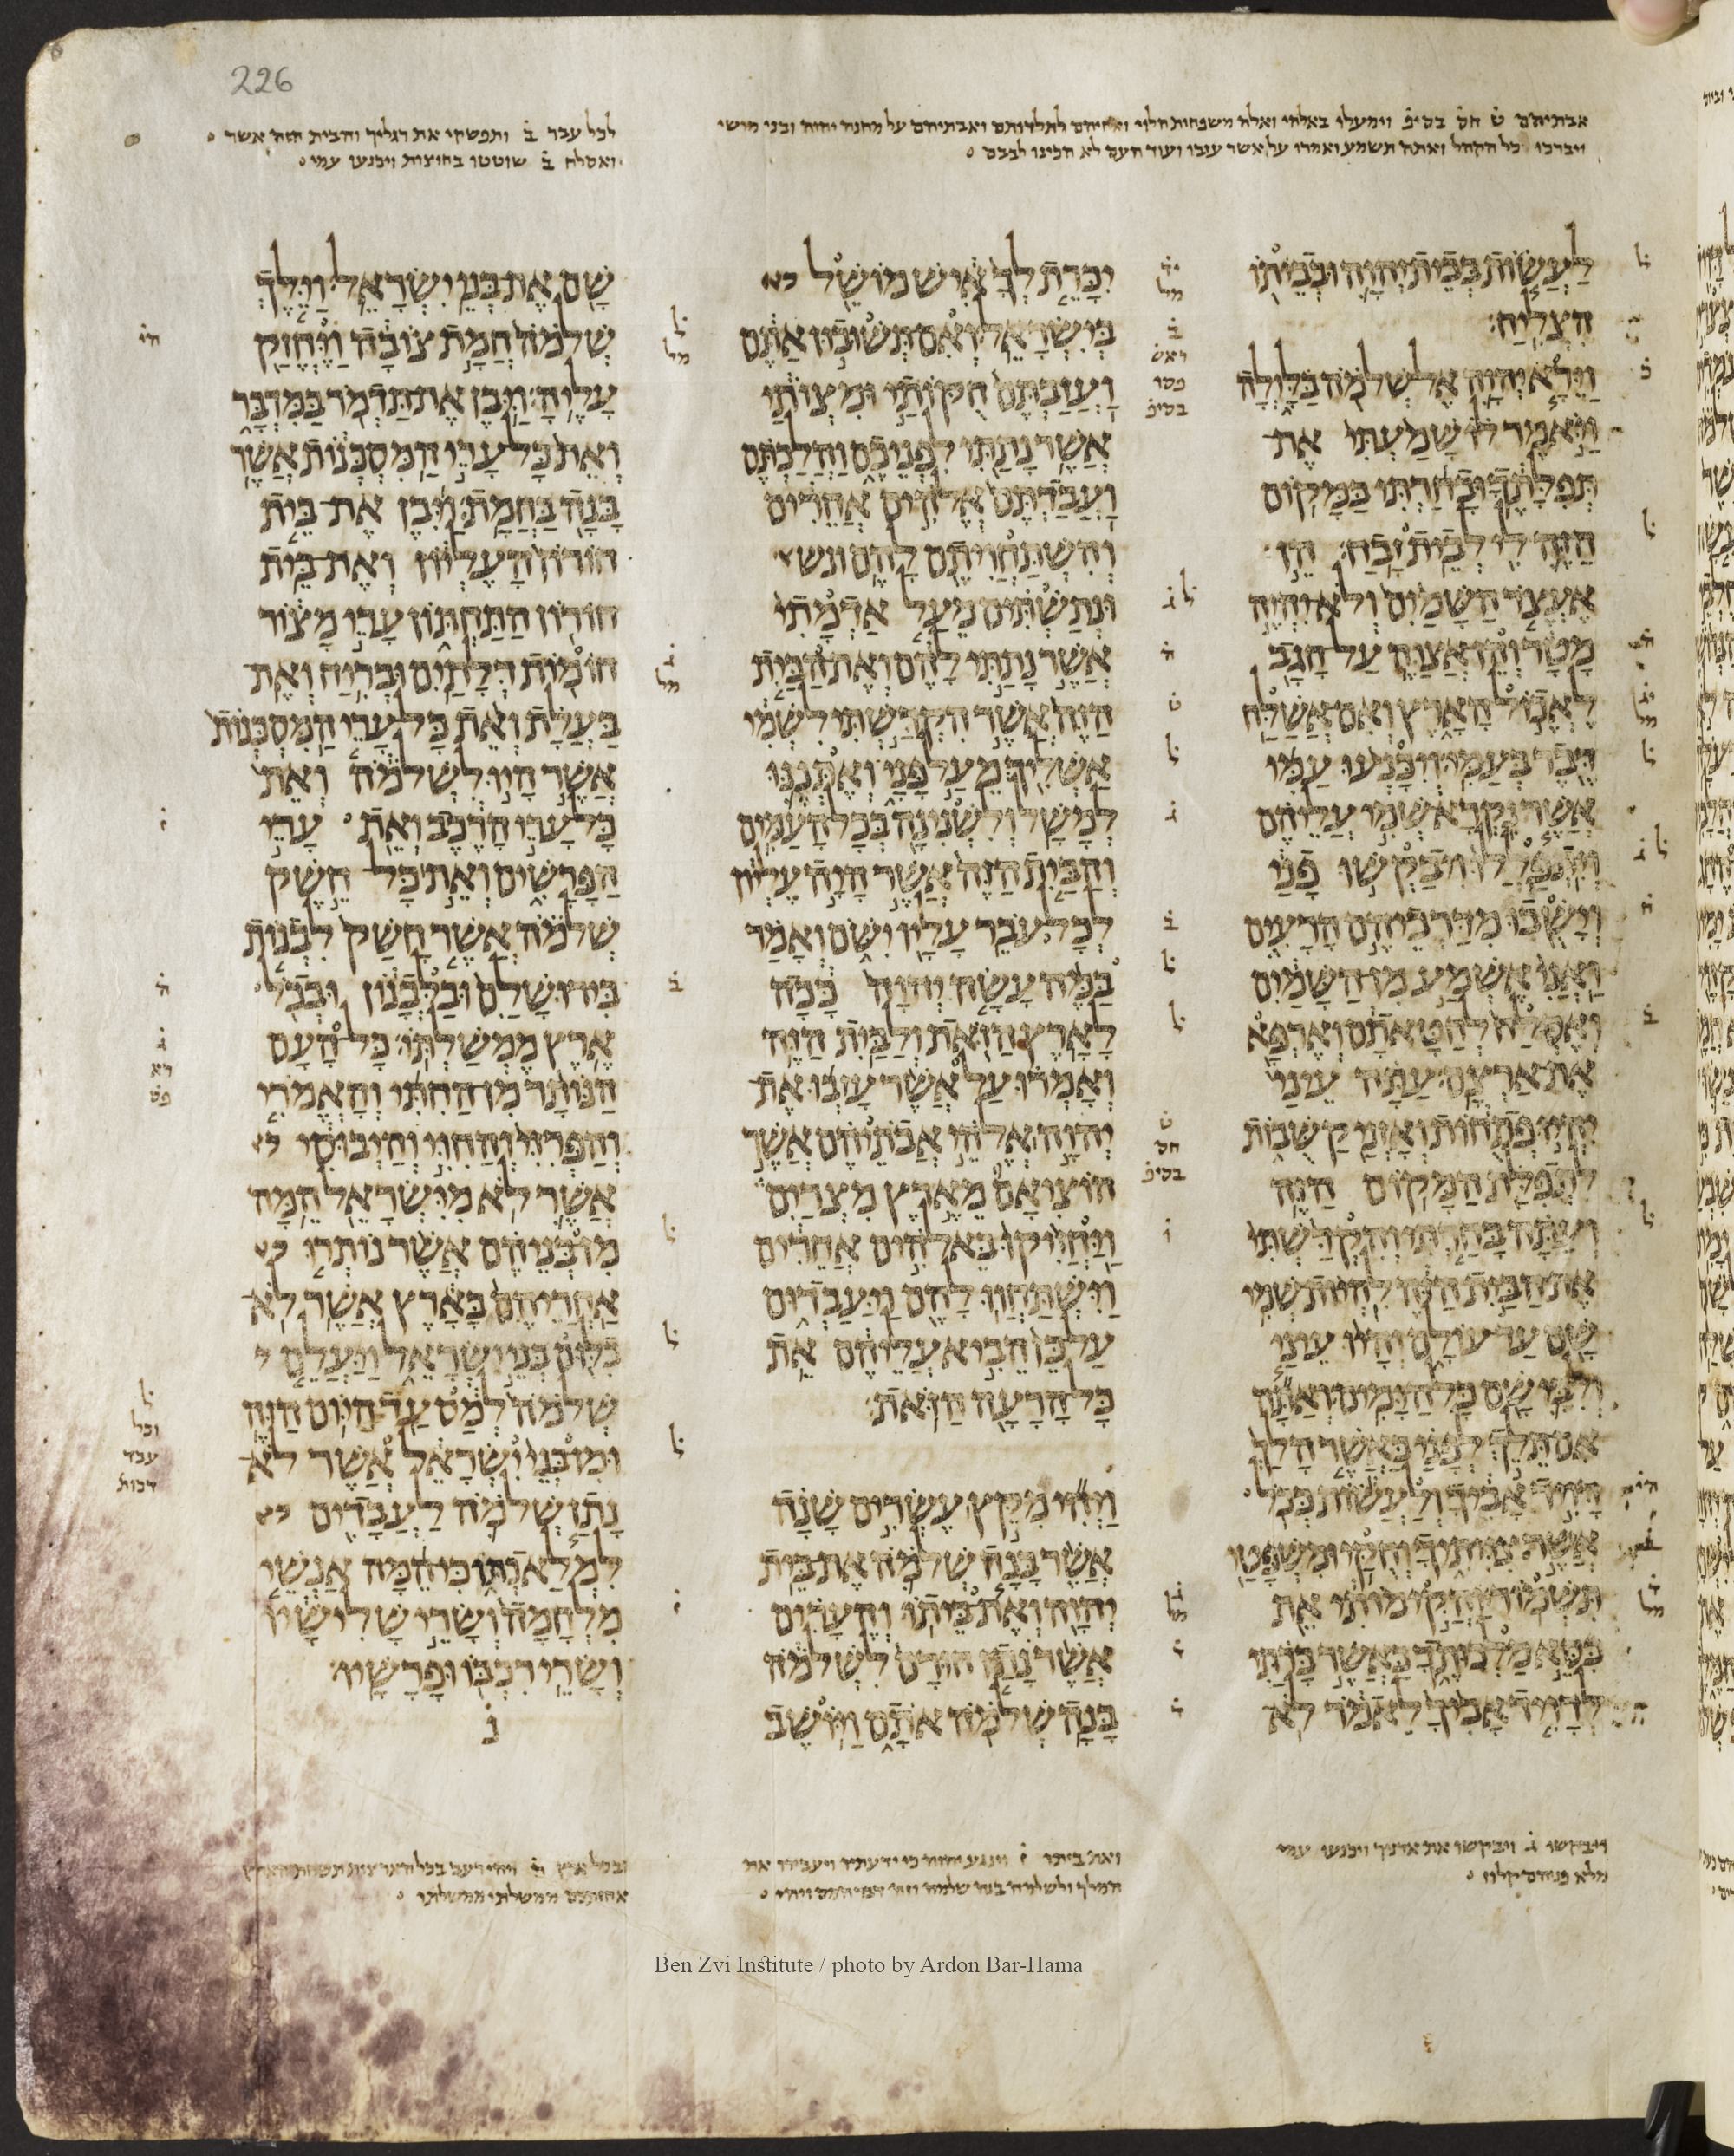 226
אבתיהם ט חס בסיפ וימעלו באלהי ואלה משפחות הלוי ואחיהם לתלדותם ואבתיהם על מחנה יהוה ובני מושי
ויברכו כל הקהל ואתה תשמע ואמרו על אשר עזבו ועוד העם לא הכינו לבבם
לכל עבר ב ותפשקי את רגליך והבית הזה אשר
ואסלח ב שוטטו בחוצות ויכנעו עמי
לעשות בבית יהוה ובביתו
הצליח
וירא יהוה אל שלמה בלילה
ויאמר לו שמעתי את
תפלתך ובחרתי במקום
הזה לי לבית זבח הן
אעצר השמים ולא יהיה
מטר והן אצוה על חגב
לאכול הארץ ואם אשלח
דבר בעמי ויכנעו עמי
אשר נקרא שמי עליהם
ויתפללו ויבקשו פני
וישבו מדרכיהם הרעים
ואני אשמע מן השמים
ואסלח לחטאתם וארפא
את ארצם עתה עיני
יהיו פתחות ואזני קשבות
לתפלת המקום הזה
ועתה בחרתי והקדשתי
את הבית הזה להיות שמי
שם עד עולם והיו עיני
ולבי שם כל הימים ואתה
אם תלך לפני כאשר הלך
דויד אביך ולעשות ככל
אשר צויתיך וחקי ומשפטי
תשמור והקימותי את
כסא מלכותך כאשר כרתי
לדויד אביך לאמר לא
יכרת לך איש מושל
בישראל ואם תשובון אתם
ועזבתם חקותי ומצותי
אשר נתתי לפניכם והלכתם
ועבדתם אלהים אחרים
והשתחויתם להם
ונתשתים מעל אדמתי
אשר נתתי להם ואת הבית
הזה אשר הקדשתי לשמי
אשליך מעל פני ואתננו
למשל ולשנינה בכל העמים
והבית הזה אשר היה עליון
לכל עבר עליו ישם ואמר
במה עשה יהוה ככה
לארץ הזאת ולבית הזה
ואמרו על אשר עזבו את
יהוה אלהי אבתיהם אשר
הוציאם מארץ מצרים
ויחזיקו באלהים אחרים
וישתחוו להם ויעבדום
על כן הביא עליהם את
כל הרעה הזאת
ויהי מקץ עשרים שנה
אשר בנה שלמה את בית
יהוה ואת ביתו והערים
אשר נתן חורם לשלמה
בנה שלמה אתם ויושב
שם את בני ישראל וילך
שלמה חמת צובה ויחזק
עליה ויבן את תדמר במדבר
ואת כל ערי המסכנות אשר
בנה בחמת ויבן את בית
חורון העליון ואת בית
חורון התחתון ערי מצור
חומות דלתים ובריח ואת
בעלת ואת כל ערי המסכנות
אשר היו לשלמה ואת
כל ערי הרכב ואת ערי
הפרשים ואת כל חשק
שלמה אשר חשק לבנות
בירושלם ובלבנון ובכל
ארץ ממשלתו כל העם
הנותר מן החתי והאמרי
והפרזי והחוי והיבוסי
אשר לא מישראל המה
מן בניהם אשר נותרו
אחריהם בארץ אשר לא
כלום בני ישראל ויעלם
שלמה למס עד היום הזה
ומן בני ישראל אשר לא
נתן שלמה לעבדים
למלאכתו כי המה אנשי
מלחמה ושרי שלישיו
ושרי רכבו ופרשיו
ויבקשו ג ויבקשו את אדניך ויכנעו עמי
מלא פניהם קלון
ואת ביתו וינגע יהוה כי ידעתיו ויעבירו את
המלך ולשלמה בנה
ובכל ארץ
ממשלתי ממשלתו
Ben Zvi Institute / photo by Ardon Bar-Hama